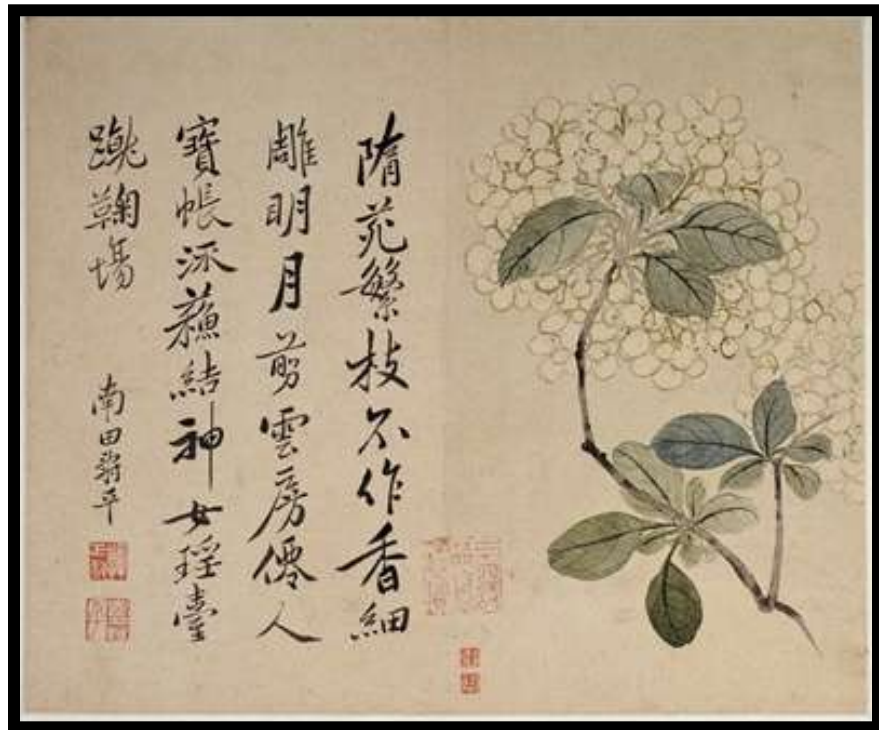 隋苑繁枝不作香細
雕明月剪雲房僊人
寶帳流蘓結神女瑶臺
跳鞠塲
南田壽平